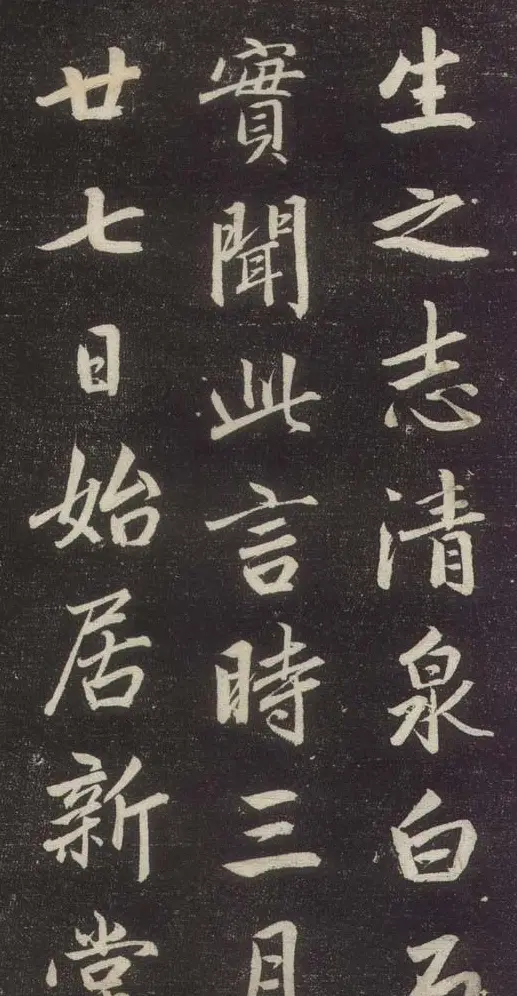 生之志清泉白石
實聞此言時三月
廿七日始居新堂